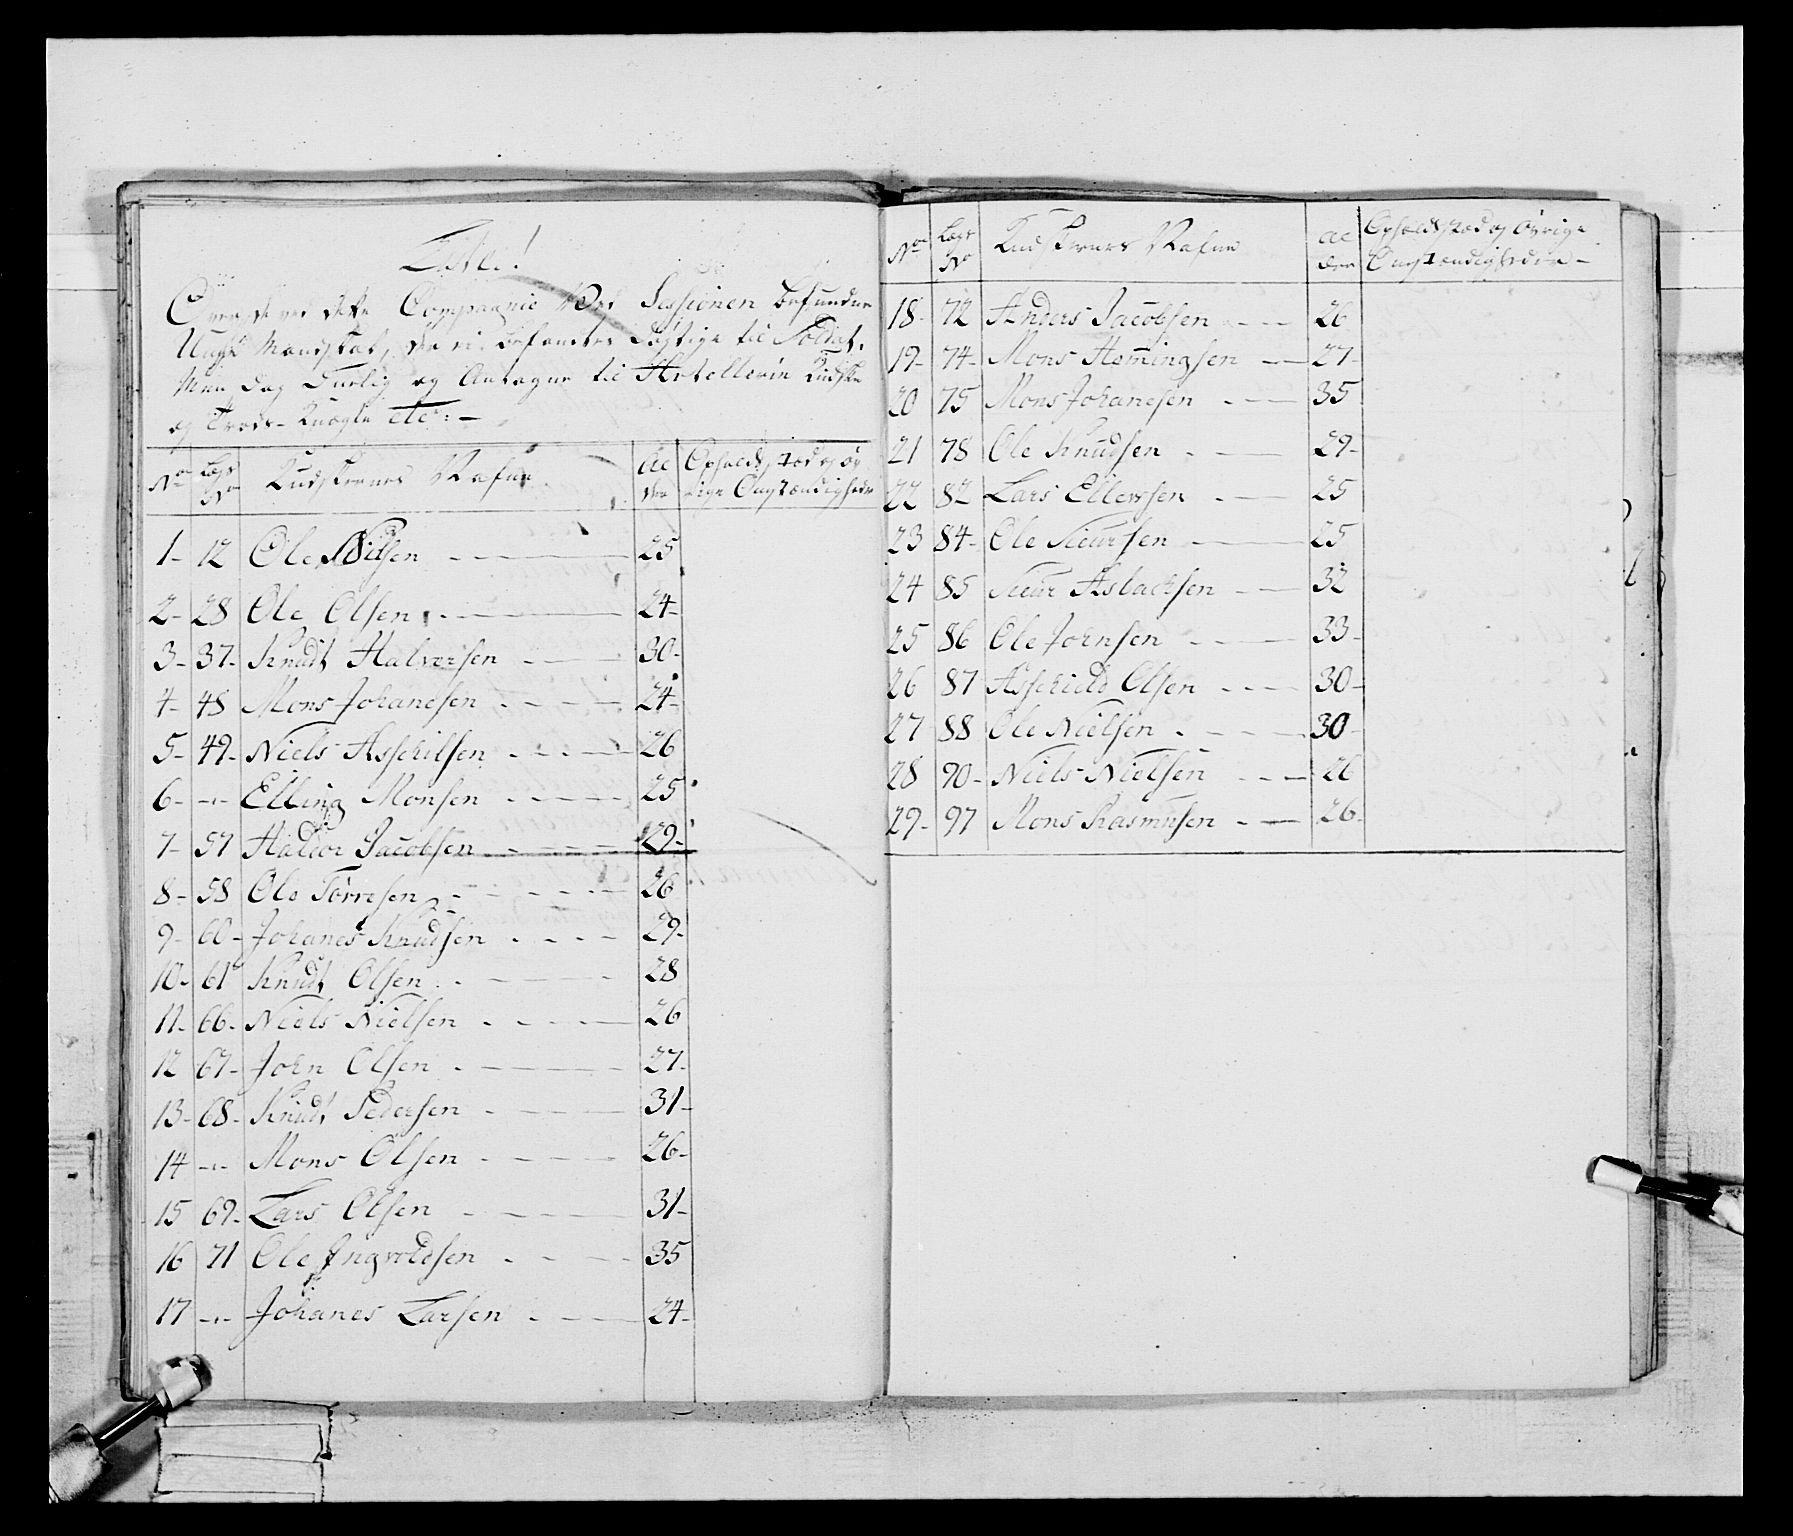 Compagnie Ved Sessionen befunden
Unge Mandskab, der ei befandtes dygtige til Soldat,
Men dog og Antagne til Artellerie Kudske
og Trods-Knægte etc: -
No Lægs No Kudskernes Nafne Alder Opholdsstæd og øvrige Omstændigheder
1- 12 Ole Nilsen 25
2- 28 Ole Olsen 24-
3- 37- Knudt Halversen 30-
4- 48 Mons Johanesen 24-
5- 49- Niels Asschilsen 26
6- -"- Elling Monsen 25
7- 57 Haldor Jacobsen 29-
8- 58 Ole Törresen 26
9- 60- Johanes Knudsen 29-
10- 61 Knudt Olsen 28
11- 66- Niels Nielsen 26
12 67- John Olsen 27-
13- 68- Knudt Pedersen 31-
14 -"- Mons Olsen 26-
15 69- Lars Olsen 31-
16 71 Ole Ingvoldsen 35
17 -"- Johanes Larsen 24-
No Lægs No Kudskernes Nafne Alder Opholdsstæd og øvrige Omstændigheder-
18- 72 Anders Jacobsen 26
19- 74- Mons Hemingsen 27-
20 75 Mons Johanesen 35
21 78 Ole Knudsen 29-
22 82 Lars Ellewsen 25
23 84- Ole Siursen 25
24 85 Siur Asbachsen 32
25 86 Ole Johnsen 33-
26 87 Asschield Olsen 30-
27 88 Ole Nielsen 30-
28 90- Niels Nielsen 26
29- 97 Mons Rasmusen 26-